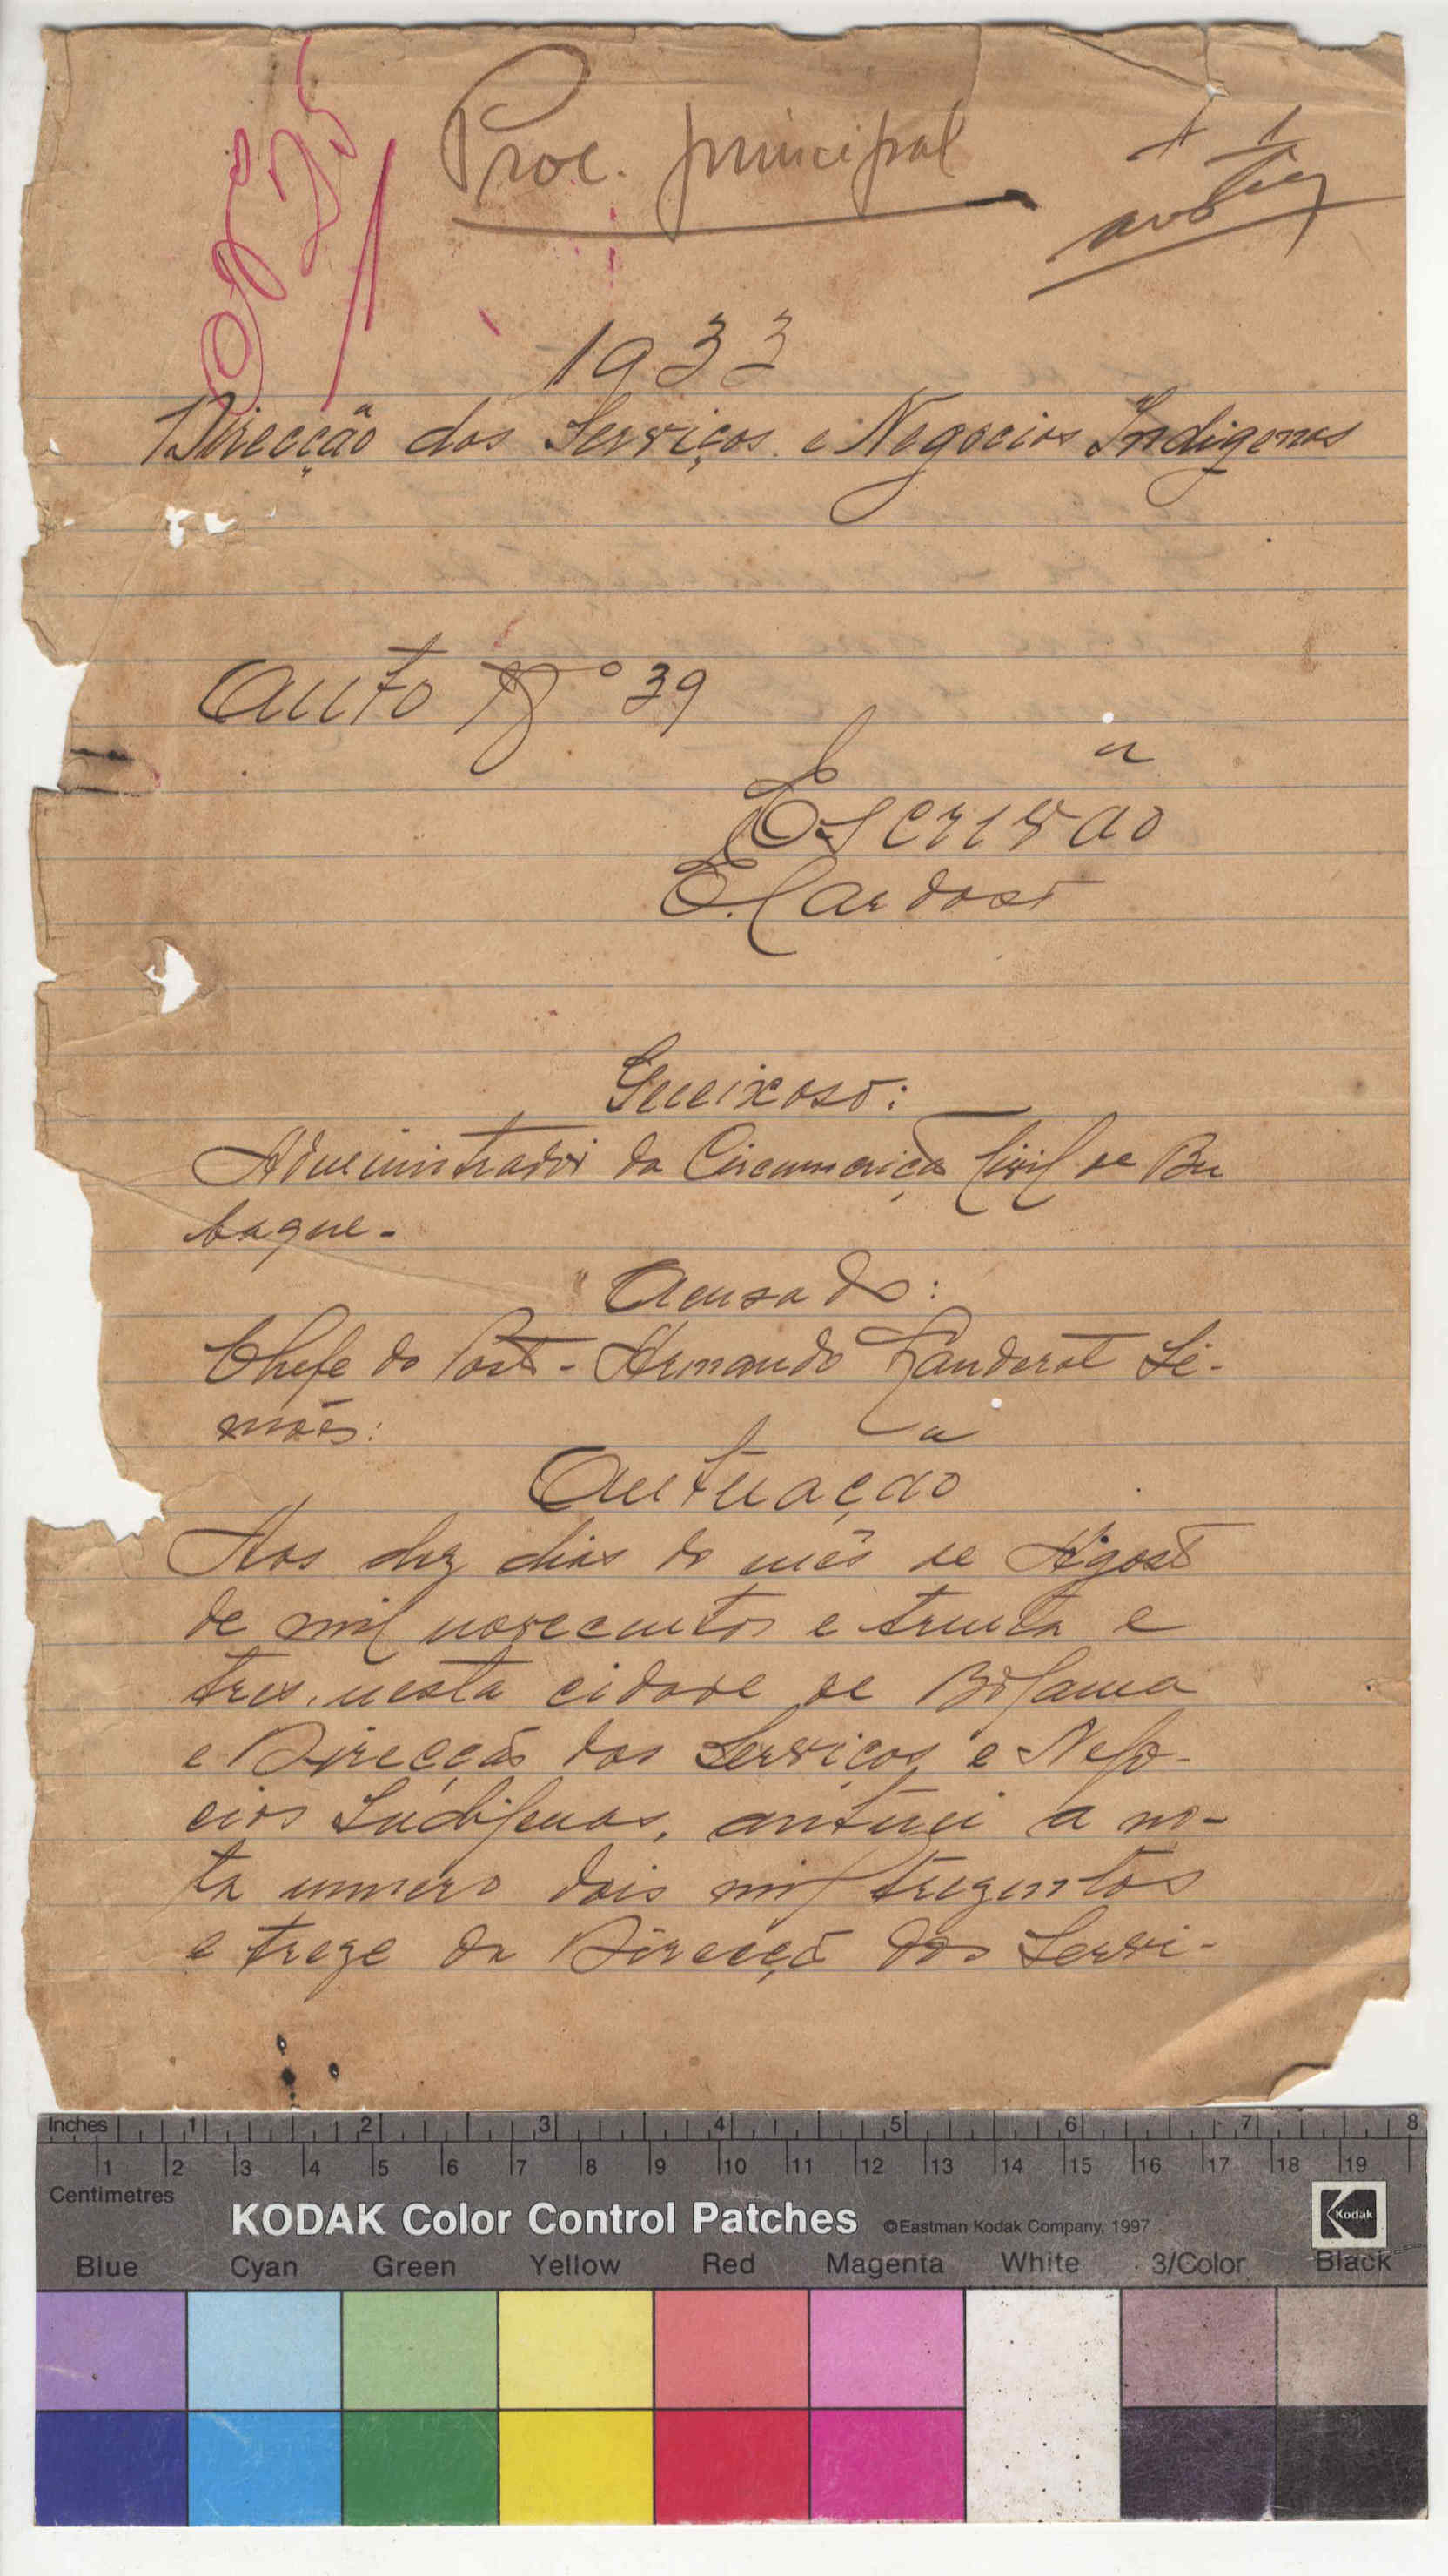 Proc. principal
1933
Direcção dos Serviços e Negocios Indigenas
Auto Nº 39
Escrivão
E. Cardoso
Queixoso:
Administrador da Circunscrição Civil de Bu
baque -
Acusado:
Chefe do Posto - Armando Landerset Si-
mões:
Autuação
Aos dez dias do mês de Agosto
de mil novecentos e trinta e
tres, nesta cidade de Bolama
e Direcção dos Serviços e Nego-
cios Indigenas, autuei a no-
ta numero dois mil trezentos
e treze da Direcção dos Servi-
Inches 1 2 3 4 5 6 7 8
1 2 3 4 5 6 7 8 9 10 11 12 13 14 15 16 17 18 19
Centimetres
KODAK Color Control Patches ©Eastman Kodak Company, 1997 Kodak
Blue Cyan Green Yellow Red Magenta White 3/Color Black